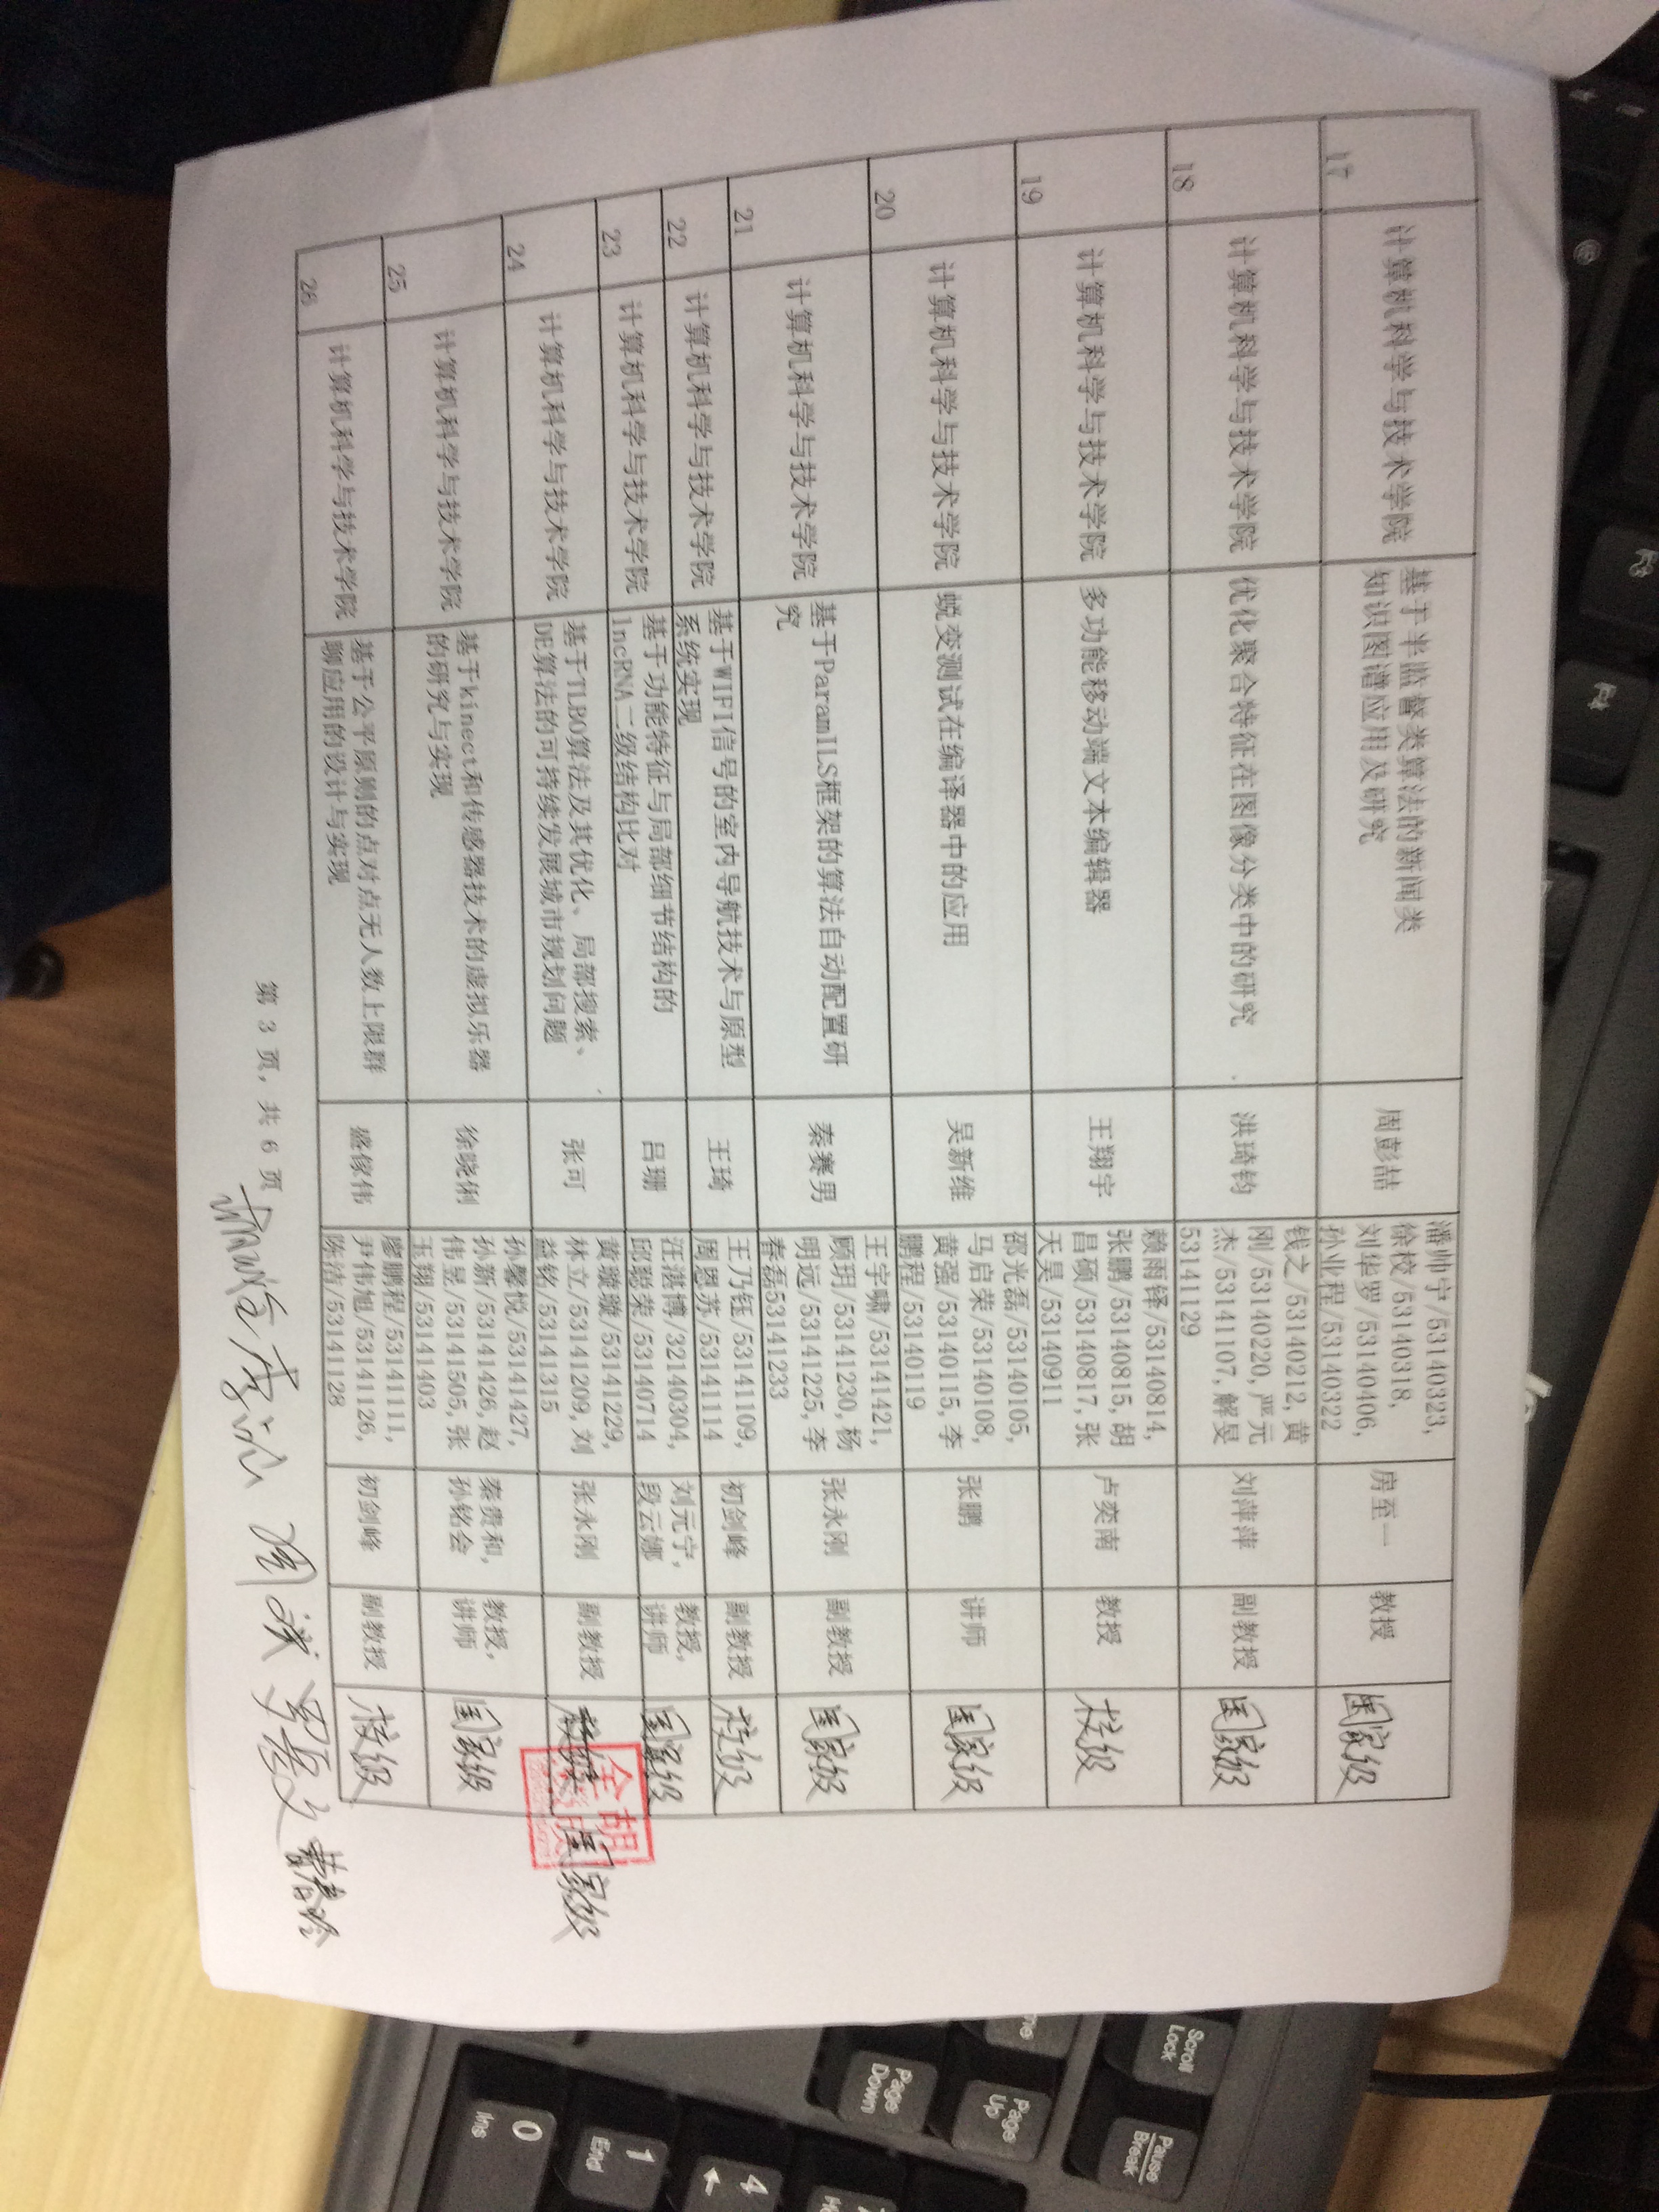 17
计算机科学与技术学院
基于半监督类算法的新闻类
知识图谱应用及研究
周彭喆
潘帅宁/53140323,
徐校/53140318,
刘华罗/53140406,
孙业程/53140322
房至一
教授
国家级
18
计算机科学与技术学院
优化聚合特征在图像分类中的研究
洪琦钧
钱之/53140212,黄
刚/53140220,严元
杰/53141107,解旻
53141129
刘萍萍
副教授
国家级
19
计算机科学与技术学院
多功能移动端文本编辑器
王翔宇
赖雨铎/53140814,
张鹏/53140815,胡
昌硕/53140817,张
天昊/53140911
卢奕南
教授
校级
20
计算机科学与技术学院
蜕变测试在编译器中的应用
吴新维
邵光磊/53140105,
马启荣/53140108,
黄强/53140115,李
鹏程/53140119
张鹏
讲师
国家级
21
计算机科学与技术学院
基于ParamILS框架的算法自动配置研
究
秦赛男
王宇啸/53141421,
顾玥/53141230,杨
明远/53141225,李
春磊53141233
张永刚
副教授
国家级
22
计算机科学与技术学院
基于WIFI信号的室内导航技术与原型
系统实现
王琦
王乃钰/53141109,
周恩苏/53141114
初剑峰
副教授
校级
23
计算机科学与技术学院
基于功能特征与局部细节结构的
lncRNA二级结构比对
吕珊
汪湛博/32140304,
邱聪荣/53140714
刘元宁,
段云娜
教授,
讲师
国家级
24
计算机科学与技术学院
基于TLBO算法及其优化、局部搜索、
DE算法的可持续发展城市规划问题
张可
黄璇璇/53141229,
林立/53141209,刘
益铭/53141315
张永刚
副教授
校级 国家级
25
计算机科学与技术学院
基于kinect和传感器技术的虚拟乐器
的研究与实现
徐晓俐
孙馨悦/53141427,
孙新/53141426,赵
伟昱/53141505,张
玉翔/53141403
秦贵和,
孙铭会
教授,
讲师
国家级
26
计算机科学与技术学院
基于公平原则的点对点无人数上限群
聊应用的设计与实现
盛傢伟
廖鹏程/53141111,
尹伟旭/53141126,
陈洁/53141128
初剑峰
副教授
校级
第 3 页, 共 6 页
Scroll
Lock
Pause
Break
Page
Up
Page
Down
4
1
End
0
Ins